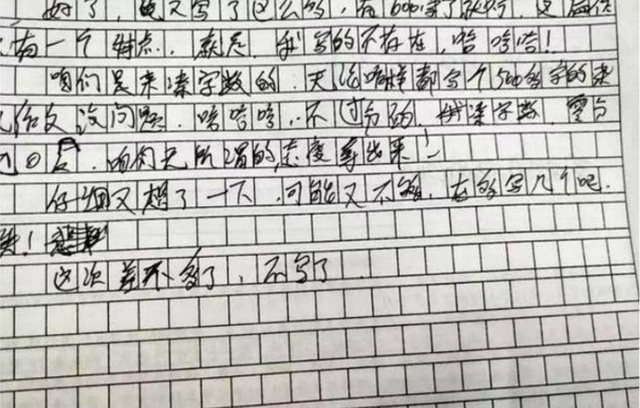 好了，也又写了这么多，有600多了
有一个特点，就是，我写的不存在，哈哈哈！
咱们是来凑字数的，无论咱样都写个500多字的来
没问题，哈哈哈，不过分的，我凑字数，要
的态度写出来！
仔细又想了一下，可能又不够，在多写几个吧.
！
这次差不多了，不写了